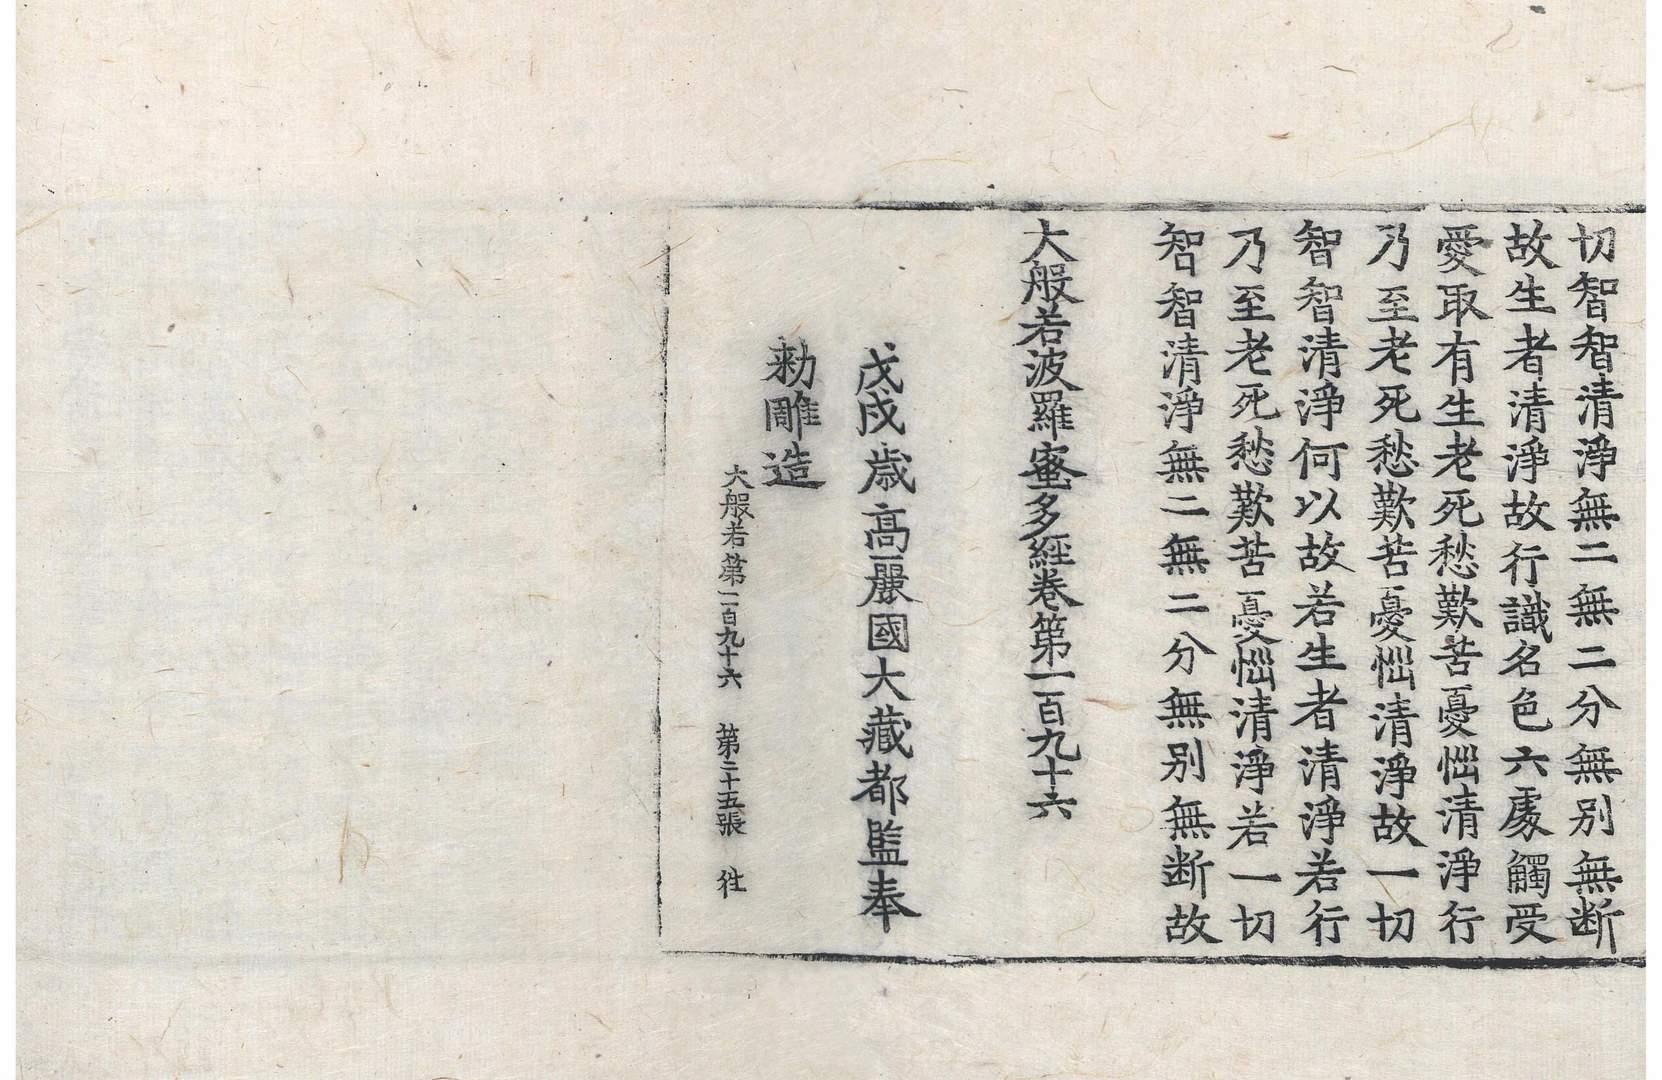 切智智清淨無二無二分無別無断
故生者清淨故行識名色六處觸受
愛取有生老死愁歎苦憂惱清淨行
乃至老死愁歎苦憂惱清淨故一切
智智清淨何以故若生者清淨若行
乃至老死愁歎苦憂惱清淨若一切
智智清淨無二無二分無別無断故
大般若波羅蜜多經卷第一百九十六
戊戌歳高麗國大藏都監奉
勑雕造
大般若第一百九十六 第二十五張 徃